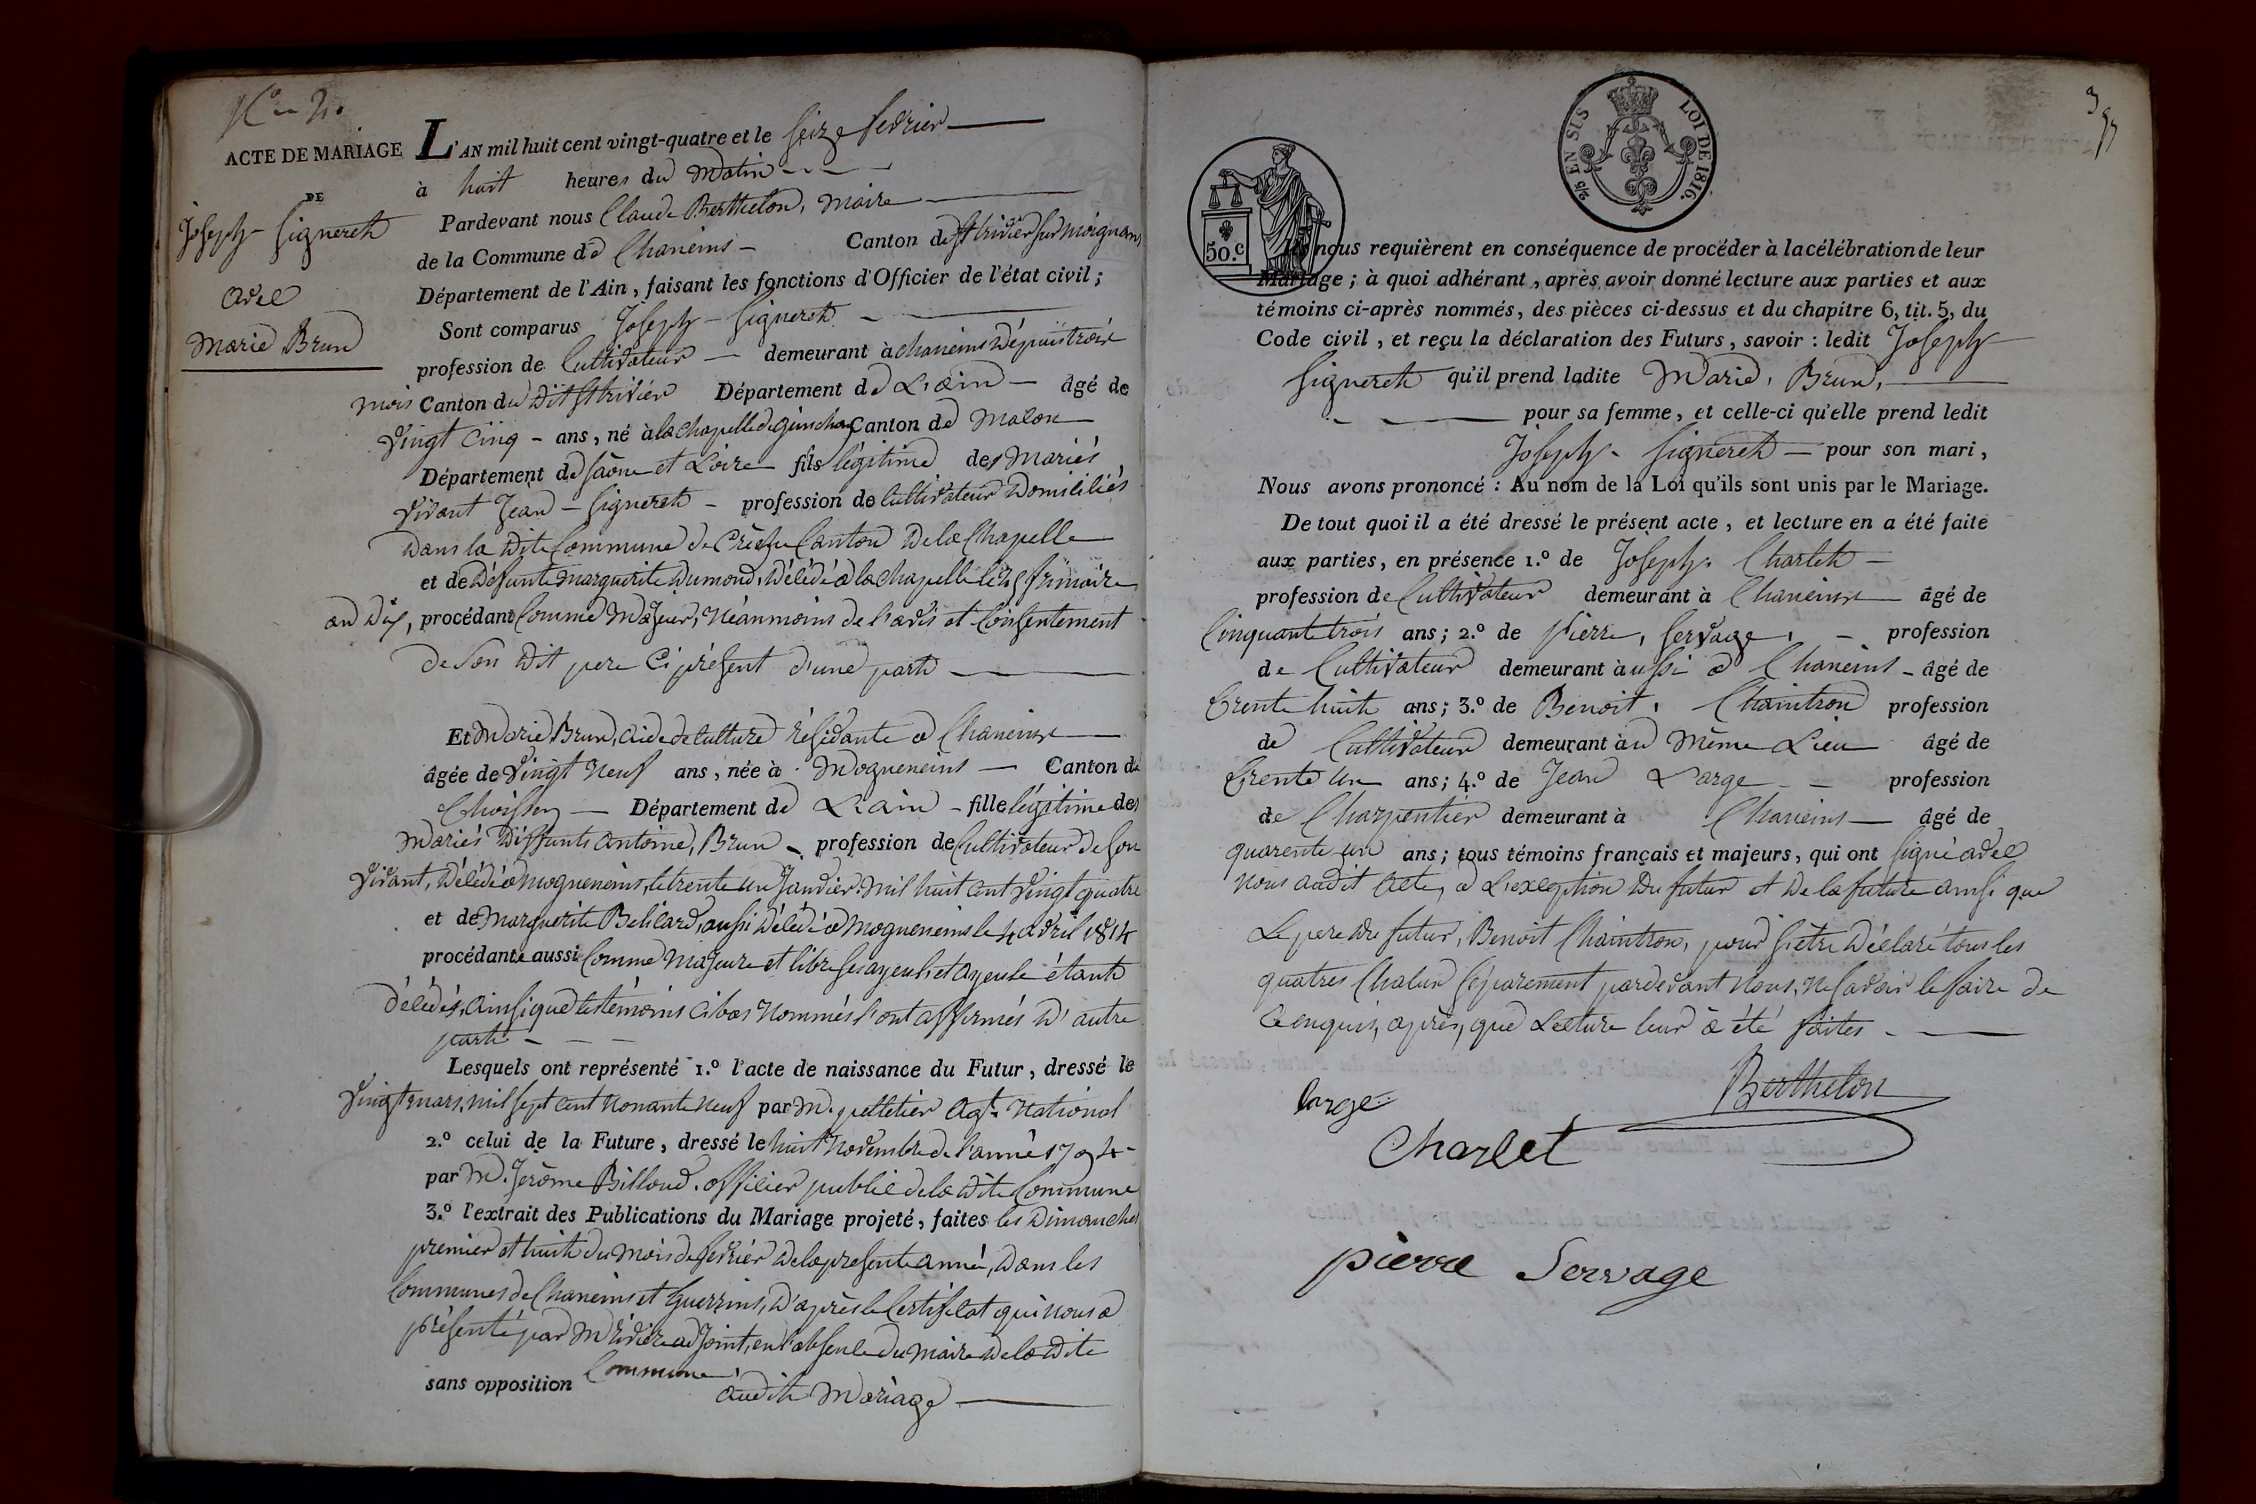 ACTE DE MARIAGE
DE
Joseph Signereth
avec
Marie Brun
L'AN mil huit cent vingt-quatre et le seize fevrier
à huit heures du matin
Pardevant nous Claude Berthelon, maire
de la Commune de Chaneins Canton de St trivier sur moignans
Département de l'Ain, faisant les fonctions d'Officier de l'état civil;
Sont comparus Joseph Signereth
profession de Cultivateur demeurant à chaneins dépuis trois
mois Canton du dit St trivier Département de L'ain âgé de
vingt cinq ans, né à la chapelle de guinchay Canton de Macon
Département de saône et Loire fils légitime des mariés
vivant Jean Signereth profession de Cultivateur domiciliés
dans la dite Commune de Canton de la Chapelle
et de défunte marguerite dumond, décédé à la chapelle le 25 frimaire
an dix, procédant Comme majeur, néanmoins de l'avis et Consentement
de son dit pere Ci présent d'une part
Et Marie Brun, aide de culture résidante a Chaneins
âgée de vingt neuf ans, née à mogneneins Canton de
thoissey Département de L'ain fille légitime des
mariés déffunts antoine, Brun profession de Cultivateur de son
vivant, décédé a mogneneins, le trente un Janvier mil huit cent vingt quatre
et de marguerite Belicard, aussi décédé a mogneneins le 4 avril 1814
procédante aussi Comme majeure et libre ses ayeuls et ayeule étants
décédés, ainsi que les témoins ci bas nommés l'ont affirmés d'autre
part
Lesquels ont représenté 1.º l'acte de naissance du Futur, dressé le
vingt mars, mil sept cent nonante neuf par M. pelletier agt. national
2.º celui de la Future, dressé le huit novembre de l'anné 1794
par M. Jerôme Billoud officier public de la dite Commune
3.º l'extrait des Publications du Mariage projeté, faites les dimanches
premier et huit du mois de fevrier de la presente anné, dans les
Communes de Chaneins et Guerreins, d'après le Certificat qui nous a
présenté par M adjoint, en l'absence du maire de la dite
Commune
sans opposition audit mariage
EN SUS
LOI DE 1816.
50.c
Ils nous requièrent en conséquence de procéder à la célébration de leur
Mariage; à quoi adhérant, après avoir donné lecture aux parties et aux
témoins ci-après nommés, des pièces ci-dessus et du chapitre 6, tit. 5, du
Code civil, et reçu la déclaration des Futurs, savoir: ledit Joseph
Signereth qu'il prend ladite Marie, Brun,
pour sa femme, et celle-ci qu'elle prend ledit
Joseph Signereth pour son mari,
Nous avons prononcé: Au nom de la Loi qu'ils sont unis par le Mariage.
De tout quoi il a été dressé le présent acte, et lecture en a été faite
aux parties, en présence 1.º de Joseph Charleth
profession de Cultivateur demeurant à Chaneins âgé de
Cinquante trois ans; 2.º de Pierre, Servage, profession
de Cultivateur demeurant à ussi a Chaneins âgé de
trente huit ans; 3.º de Benoit, Chaintron profession
de Cultivateur demeurant à u même Lieu âgé de
trente un ans; 4.º de Jean Large profession
de Charpentier demeurant à Chaneins âgé de
quarente un ans; tous témoins français et majeurs, qui ont signé avec
nous audit acte, a L'exception du futur et de la future ainsi que
Le pere du futur, Benoit Chaintron, pour s'être déclaré tous les
quatres Chacun séparement pardevant nous, ne savoir le faire de
Ce enquis, après, que Lecture leur a été faites
large
Berthelon
Charlet
pierre Servage